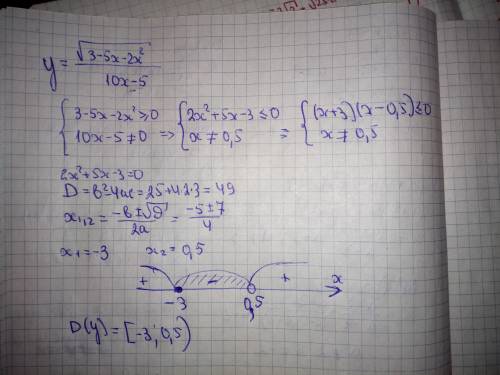 y = √(3-5x-2x²) / (10x-5)
{ 3-5x-2x² ≥ 0 { 2x²+5x-3 ≤ 0 { (x+3)(x-0,5) ≤ 0
{ 10x-5 ≠ 0 => { x ≠ 0,5 = { x ≠ 0,5
2x²+5x-3=0
D = b²-4ac = 25+4·2·3 = 49
x₁,₂ = (-b ± √D) / 2a = (-5 ± 7) / 4
x₁ = -3 x₂ = 0,5
+ - + x
-3 0,5
D(y) = [-3; 0,5)